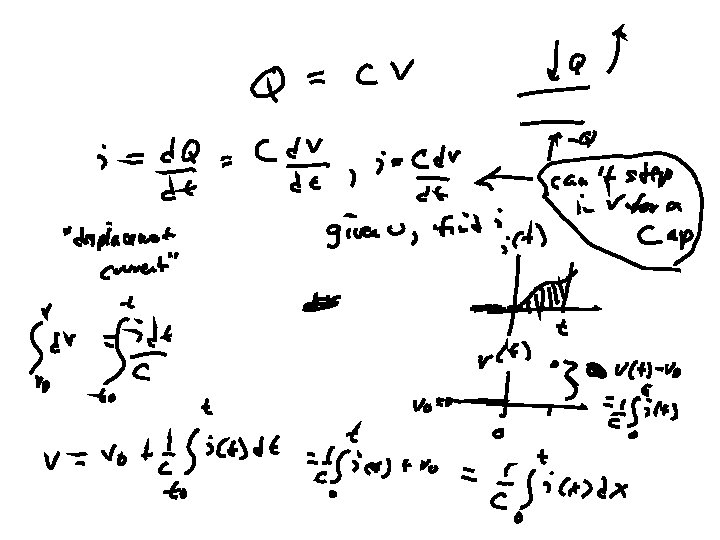 Q = CV
↓Q
-Q
i = dQ/dt = C dV/dt, i = C dv/dt
can't step
in V for a
Cap
"displacement
current"
given v, find i
i(t)
t
∫_{v0}^{v} dv = ∫_{t0}^{t} i dt/C
v(t)
v0
0
V(t)-v0
= 1/C ∫_0^t i(t)
v = v0 + 1/C ∫_{t0}^{t} i(t) dt = 1/C ∫_0^t i(x) + v0 = 1/C ∫_0^t i(x) dx